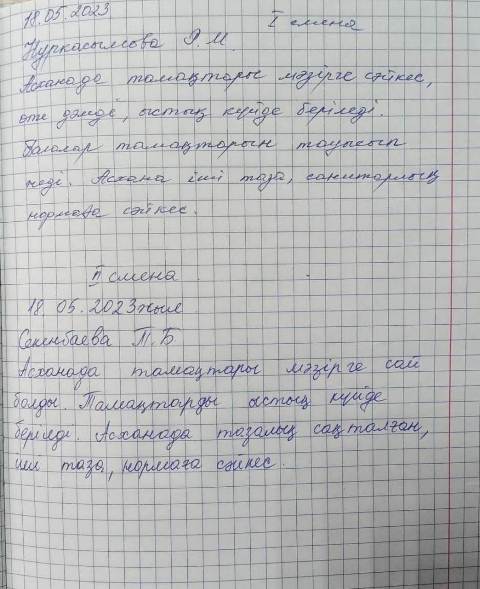 18.05.2023 I смена
Нуркасымова Э.М.
Асханада тамақтары мәзірге сәйкес,
өте дәмді, ыстық күйде беріледі.
Балалар тамақтарын тауысып
жеді. Асхана іші таза, санитарлық
нормаға сәйкес.
II смена
18.05.2023жыл
Секенбаева Т.Б
Асханада тамақтары мәзірге сай
болды. Тамақтарды ыстық күйде
берілді. Асханада тазалық сақталған,
іші таза, нормаға сәйкес.